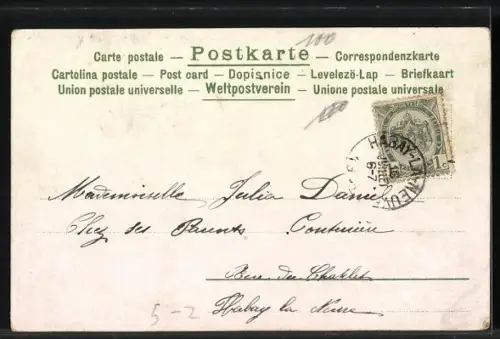 100
Carte postale — Postkarte — Correspondenzkarte
Cartolina postale — Post card — Dopisnice — Levelező-Lap — Briefkaart
Union postale universelle — Weltpostverein — Unione postale universale
100
1c
HABAY-LA-NEUVE
6-7
Mademoiselle Julia Daniel
Chez ses Parents Couturière
Rue du Chatelet
Habay la Neuve
5-2